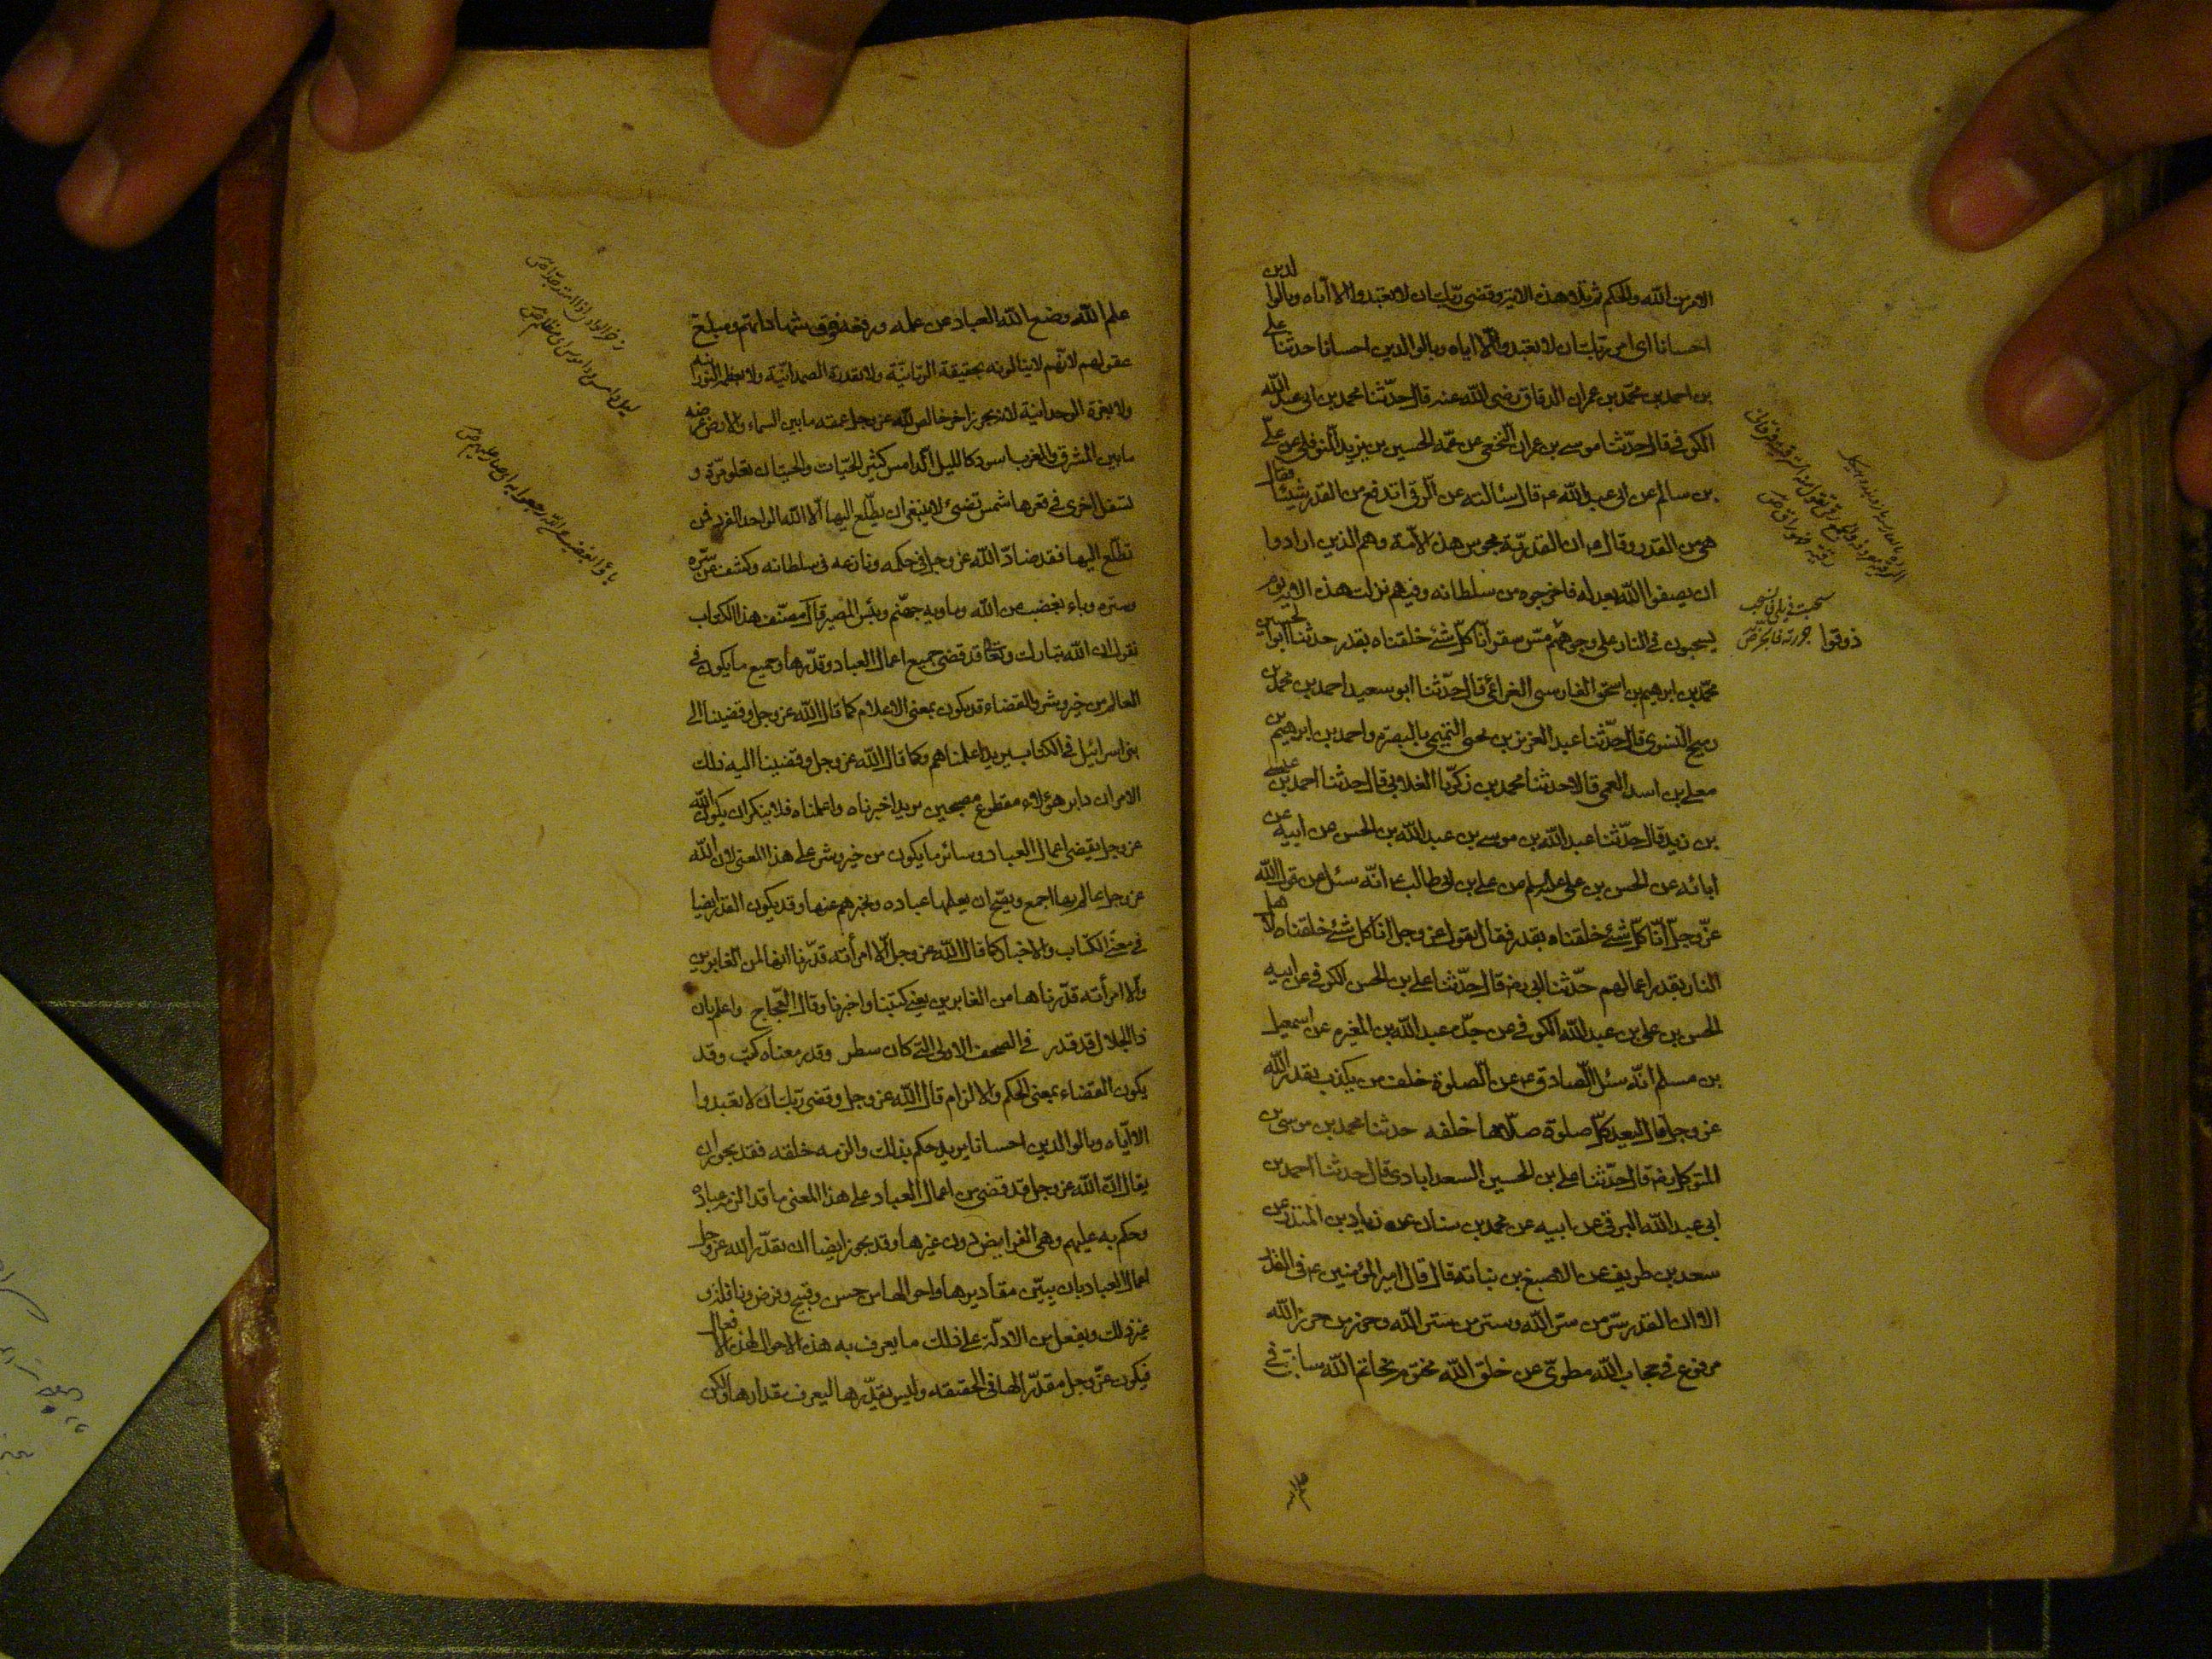 الامر من الله والحكم ثم تلا هذه الاية وقضى ربك ان لا تعبدوا الا اياه وبالوالدين
احسانا اى امر ربك ان لا تعبدوا الا اياه وبالوالدين احسانا حدثنا على
بن احمد بن محمد بن عمران الدقاق رضى الله عنه قال حدثنا محمد بن ابى عبد الله
الكوفى قال حدثنا موسى بن عمران النخعى عن عمه الحسين بن يزيد النوفلى عن على
بن سالم عن ابى عبد الله ع قال سئالته عن الرقى اتدفع من القدر شيئا فقال
هى من القدر وقال ع ان القدرية مجوس هذه الامة وهم الذين ارادوا
ان يصفوا الله بعدله فاخرجوه من سلطانه وفيهم نزلت هذه الاية يوم
يسحبون فى النار على وجوههم ذوقوا مس سقر انا كل شئ خلقناه بقدر حدثنا ابو الحسين
محمد بن ابرهيم بن اسحق الفارسى الغرائمى قال حدثنا ابو سعيد احمد بن محمد بن
رميح النسوى قال حدثنا عبد العزيز بن يحيى التميمى بالبصرة واحمد بن ابرهيم بن
معلى بن اسد العمى قالا حدثنا محمد بن زكريا الغلابى قال حدثنا احمد بن عيسى
بن زيد قال حدثنا عبد الله بن موسى بن عبد الله بن الحسن عن ابيه عن
ابائه عن الحسن بن على عن على بن ابى طالب ع انه سئل عن قول الله
عز وجل انا كل شئ خلقناه بقدر فقال يقول عز وجل انا كل شئ خلقناه لاهل
النار بقدر اعمالهم حدثنا ابى ره قال حدثنا على بن الحسن الكوفى عن ابيه
الحسن بن على بن عبد الله الكوفى عن جده عبد الله بن المغيرة عن اسمعيل
بن مسلم انه سئل الصادق ع عن الصلوة خلف من يكذب بقدر الله
عز وجل قال ليعيد كل صلوة صلاها خلفه حدثنا محمد بن موسى بن
المتوكل ره قال حدثنا على بن الحسين السعدابادى قال حدثنا احمد بن
ابى عبد الله البرقى عن ابيه عن محمد بن سنان عن زياد بن المنذر عن
سعد بن طريف عن الاصبغ بن نباته قال قال امير المؤمنين ع فى القدر
الا ان القدر سر من سر الله وستر من ستر الله وحرز من حرز الله
مرفوع فى حجاب الله مطوى عن خلق الله مختوم بخاتم الله سابق فى
علم الله وضع الله العباد عن علمه ورفعه فوق شهاداتهم ومبلغ
عقولهم لانهم لا ينالونه بحقيقة الربانية ولا بقدرة الصمدانية ولا بعظمة النورانيه
ولا بعزة الوحدانية لانه بحر زاخر خالص لله عز وجل عمقه ما بين السماء والارض عرضه
ما بين المشرق والمغرب اسود كالليل الدامس كثير الحيات والحيتان تعلو مرة و
تسفل اخرى فى قعرها شمس تضئ لا ينبغى ان يطلع اليها الا الله الواحد الفرد فمن
تطلع اليها فقد ضاد الله عز وجل فى حكمه ونازعه فى سلطانه وكشف عن سره
وستره وباء بغضب من الله وماويه جهنم وبئس المصير قال مصنف هذا الكتاب
نقول ان الله تبارك وتعالى قد قضى جميع اعمال العباد وقدرها وجميع ما يكون فى
العالم من خير وشر والقضاء قد يكون بمعنى الاعلام كما قال الله عز وجل وقضينا الى
بنى اسرائيل فى الكتاب يريد اعلمناهم وكما قال الله عز وجل وقضينا اليه ذلك
الامر ان دابر هؤلاء مقطوع مصبحين يريد اخبرناه واعلمناه فلا ينكر ان يكون الله
عز وجل يقضى اعمال العباد وسائر ما يكون من خير وشر على هذا المعنى لان الله
عز وجل عالم بها اجمع ويصح ان يعلمها عباده ويخبرهم عنها وقد يكون القدر ايضا
فى معنى الكتاب والاخبار كما قال الله عز وجل الا امرأته قدرنا انها لمن الغابرين
والا امرأته قدرناها من الغابرين يعنى كتبنا واخبرنا وقال العجاج واعلم بان
ذا الجلال قد قدر فى الصحف الاولى التى كان سطر وقدر معناه كتب وقد
يكون القضاء بمعنى الحكم والالزام قال الله عز وجل وقضى ربك ان لا تعبدوا
الا اياه وبالوالدين احسانا يريد حكم بذلك والزمه خلقه فقد يجوز ان
يقال ان الله عز وجل قد قضى من اعمال العباد على هذا المعنى ما قد الزمه عباده
وحكم به عليهم وهى الفرايض دون غيرها وقد يجوز ايضا ان يقدر الله عز وجل
اعمال العباد بان يبين مقاديرها واحوالها من حسن وقبح وفرض ونافلة و
غير ذلك ويفعل من الادلة على ذلك ما يعرف به هذه الاحوال لهذه الافعال
فيكون عز وجل مقدرا لها فى الحقيقة وليس يقدرها ليعرف مقدارها ولكن